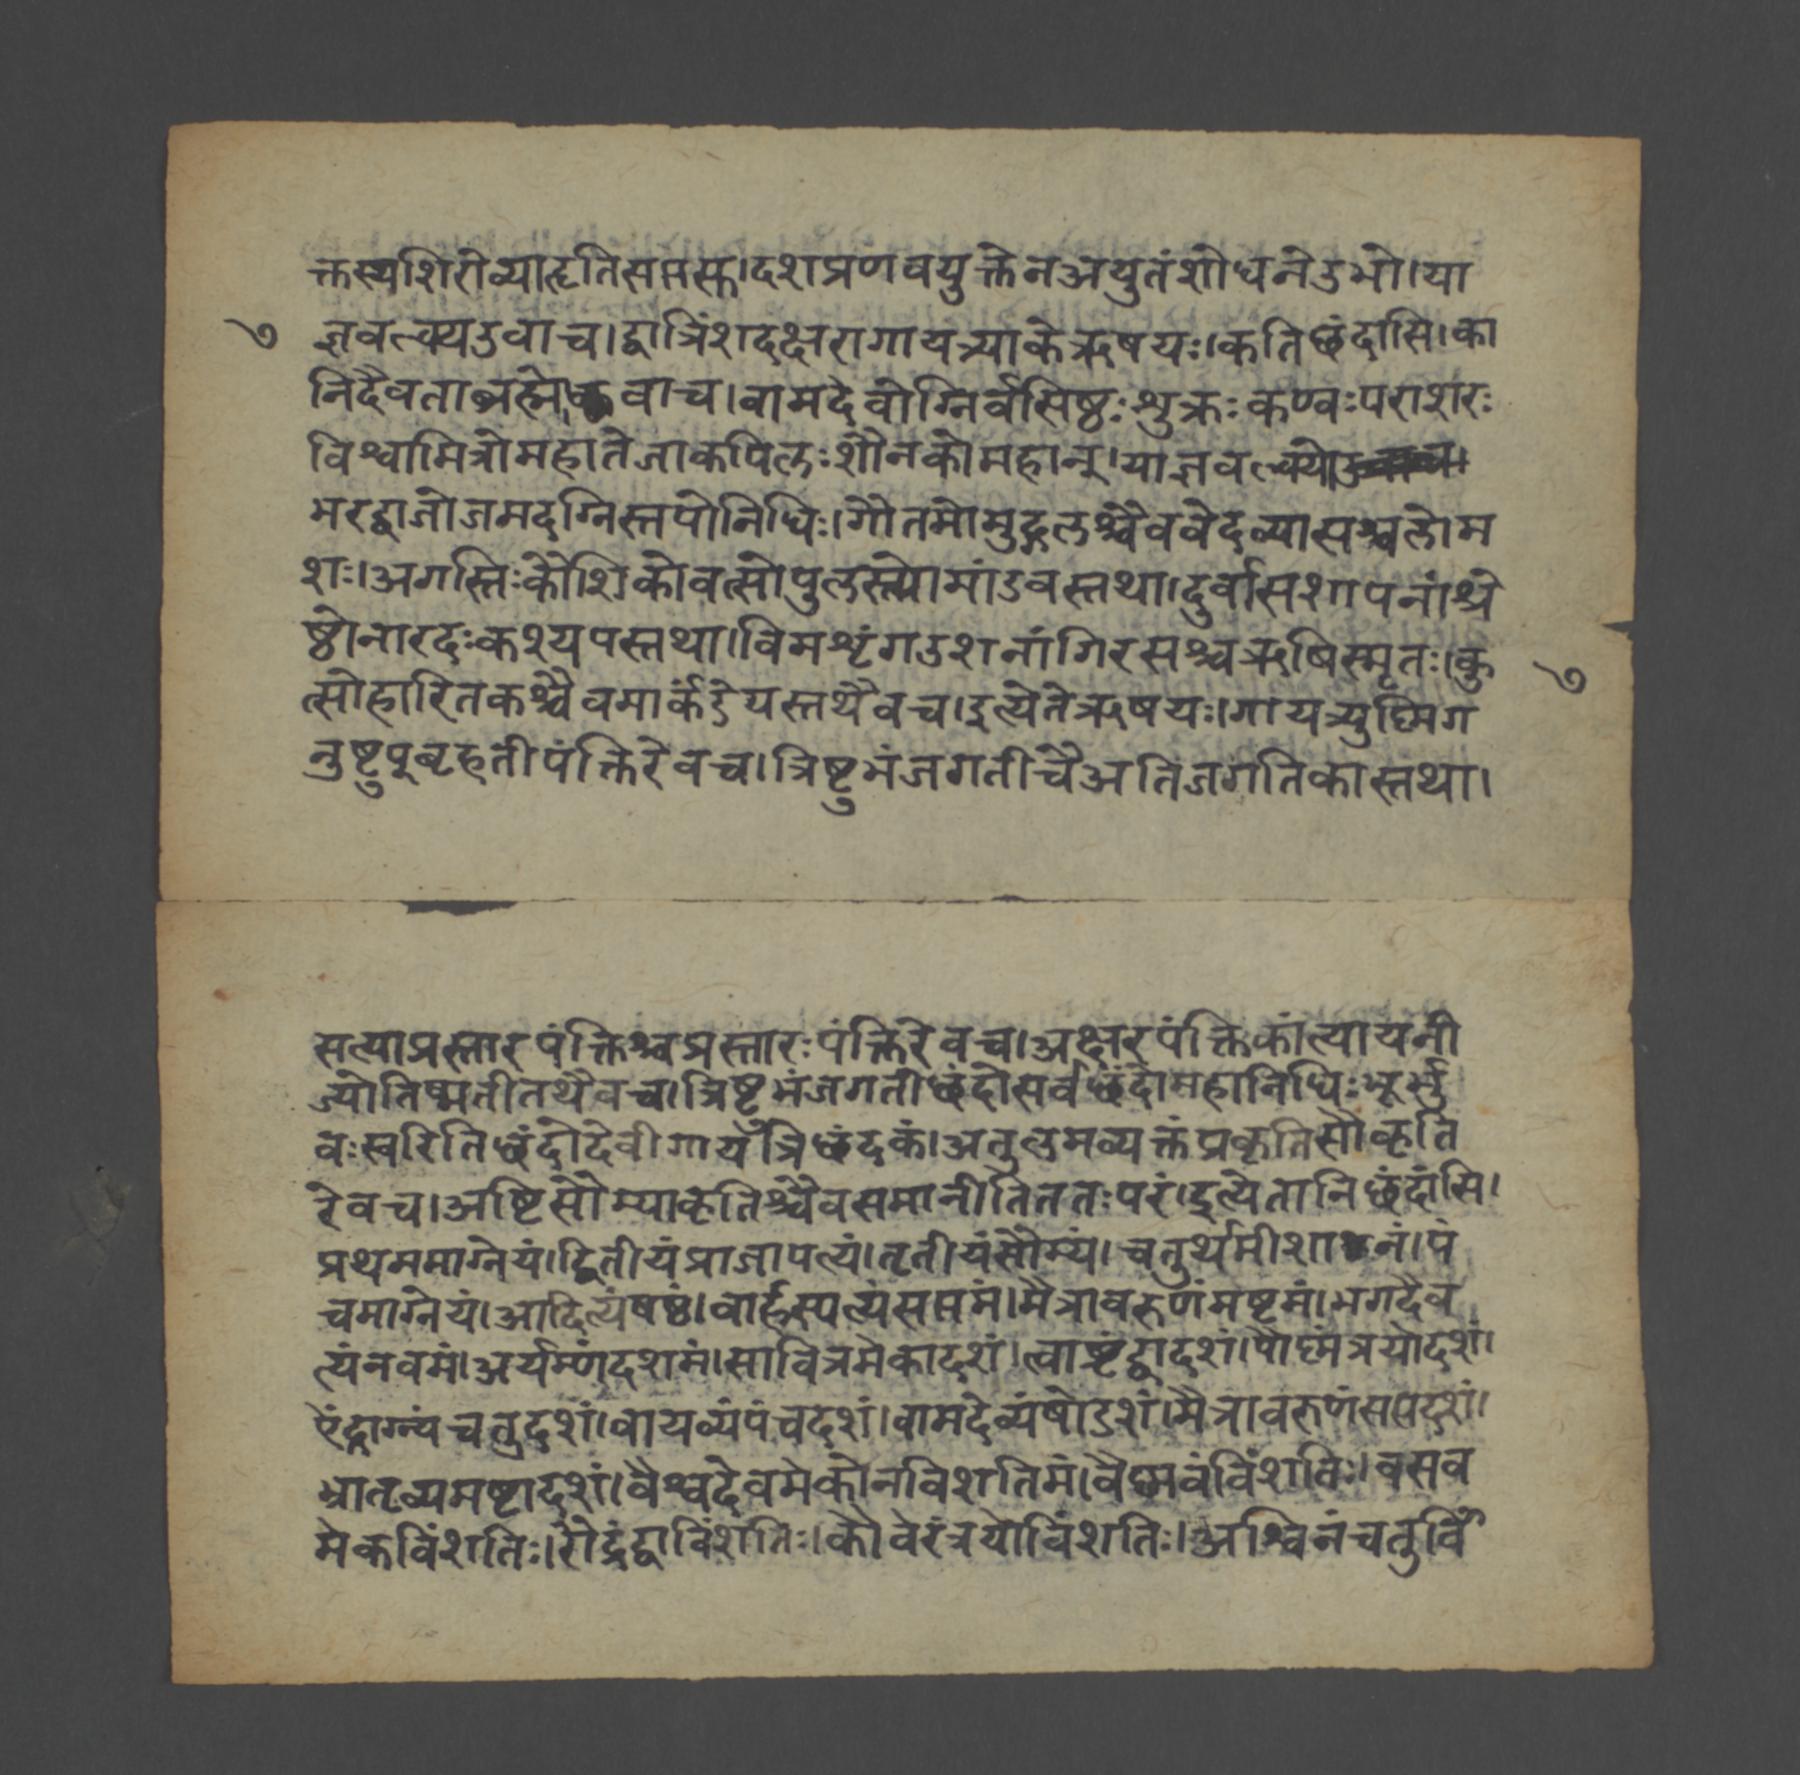 क्तस्यशिरोव्याहृतिसप्तस्क।दशप्रणवयुक्तेनअयुतंशोधनेउभो।या
७
ज्ञवल्क्यउवाच।द्वात्रिंशदक्षरागायत्र्याकेऋषयः।कतिछंदासि।का
निदैवताब्रह्मोवाच।वामदेवोग्निर्वसिष्ठःशुक्रःकण्वःपराशरः
विश्वामित्रोमहातेजाकपिलःशौनकोमहान्।याज्ञवल्क्यो
भरद्वाजोजमदग्निस्तपोनिधिः।गौतमोमुद्गलश्चैववेदव्यासश्चलोम
शः।अगस्तिःकौशिकोवत्सोपुलस्त्योमांडवस्तथा।दुर्वासशापनांश्रे
ष्ठोनारदःकश्यपस्तथा।विमशृंगउशनांगिरसश्चऋषिस्मृतः।कु
७
त्सोहारितकश्चैवमार्कंडेयस्तथैवच।इत्येतेऋषयः।गायत्र्युष्णिग
नुष्टुप्बृहतीपंक्तिरेवच।त्रिष्टुभंजगतीचैअतिजगतिकास्तथा।
सत्याप्रस्तारपंक्तिश्चप्रस्तारःपंक्तिरेवच।अक्षरपंक्तिकांत्यायनी
ज्योतिष्मतीतथैवच।त्रिष्टुभंजगतीछंदोसर्वछंदोमहानिधिःभूर्भु
वःस्वरितिछंदोदेवीगायत्रिछंदकं।अतुलमव्यक्तंप्रकृतिसौकृति
रेवच।अष्टिसौम्याकृतिश्चैवसमानीतिततःपरं।इत्येतानिछंदांसि।
प्रथममाग्नेयं।द्वितीयंप्राजापत्यं।तृतीयंसौम्यं।चतुर्थमीशानं।पं
चमाग्नेयं।आदित्यंषष्ठं।बार्हस्पत्यंसप्तमं।मैत्रावरुणंमष्टमं।भगदैव
त्यंनवमं।अर्यम्णंदशमं।सावित्रमेकादशं।त्वाष्ट्रंद्वादशं।पौष्णंत्रयोदशं।
ऐंद्राग्न्यंचतुर्दशं।वायव्यंपंचदशं।वामदेव्यंषोडशं।मैत्रावरुणंसप्तदशं।
भ्रातृव्यमष्टादशं।वैश्वदेवमेकोनविशतिमं।वैष्णवंविंशतिः।वसव
मेकविंशतिः।रौद्रंद्वाविंशतिः।कौवेरंत्रयोविंशतिः।अश्विनंचतुर्विं